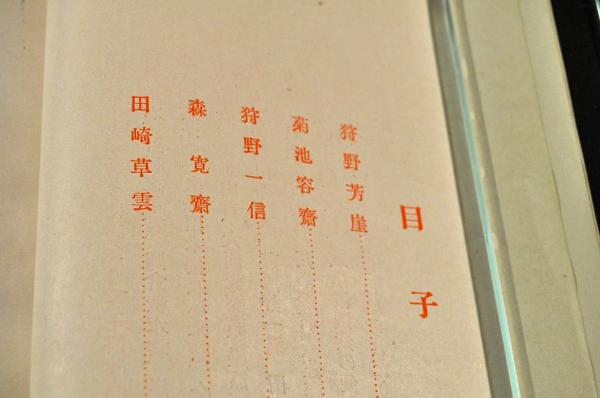 目子
狩野芳崖
菊池容齋
狩野一信
森寬齋
田崎草雲